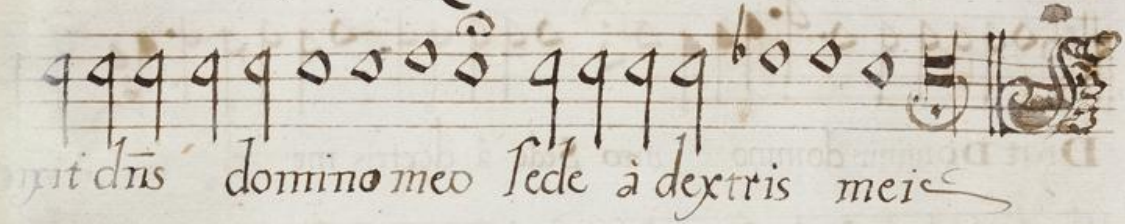 ixit dn̄s domino meo sede à dextris meis